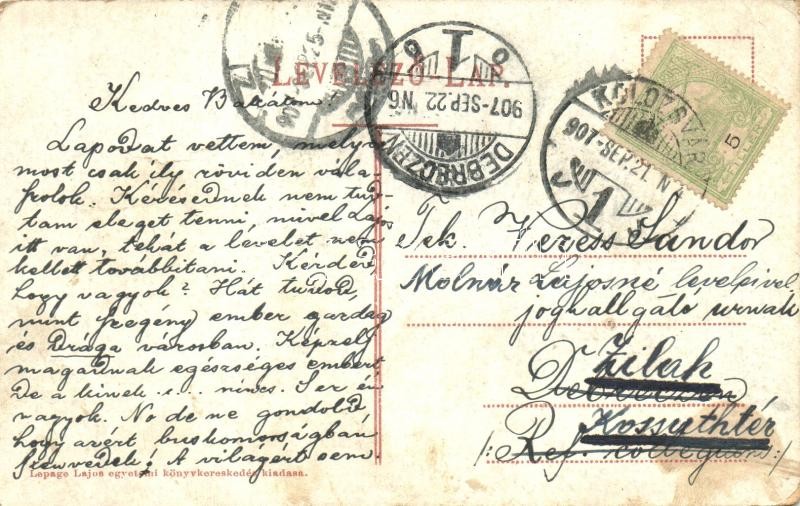 LEVELEZŐ LAP.
DEBRECZEN
907-SEP.22. N6
KOLOZSVÁR
907-SEP.21. N7
1
5
Kedves Barátom!
Lapodat vettem, melyre
most csak ily röviden vála-
szolok. Kérésednek nem tud-
tam eleget tenni, mivel Lajos
itt van, tehát a levelet nem
kellett továbbítani. Kérded,
hogy vagyok? Hát tudod,
mint szegény ember gazdag
és Drága városban. Képzelj
magadnak egészséges embert
De a kinek s... nincs. Ser én
vagyok. No de ne gondold
hogy azért buskomorságban
szenvedek! A világért sem.
Tek. Veress Sándor
Molnár Lajosné leveleivel
joghallgató urnak
Zilah
Debreczen
Kossuthtér
/: Ref. collegium :/
Lepage Lajos egyetemi könyvkereskedés kiadasa.